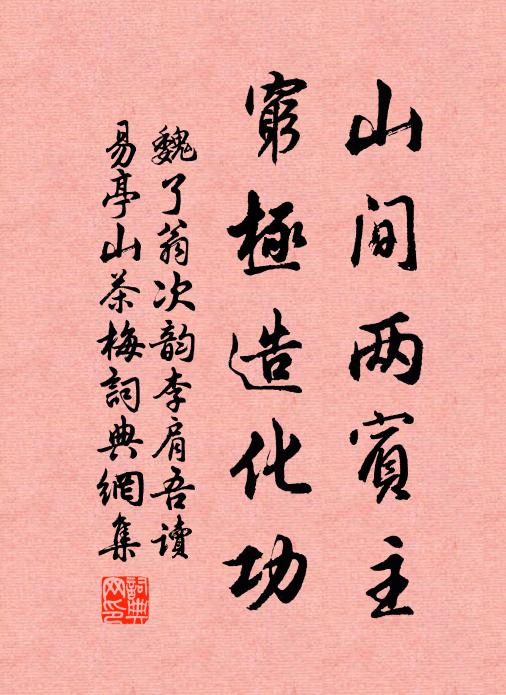 山间两賓主
窮極造化功
魏了翁次韵李肩吾讀
易亭山茶梅詞典網集
詞典網印